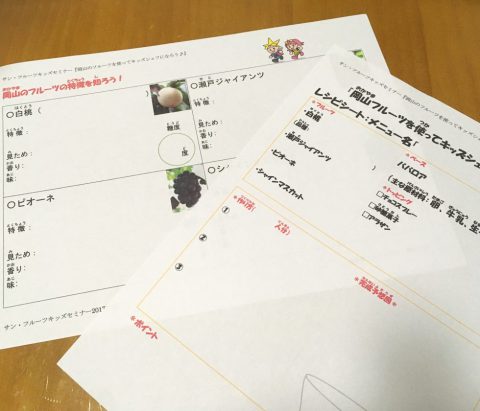 サン・フルーツキッズセミナー『岡山のフルーツを使ってキッズシェフになろう♪』
岡山のフルーツの特徴を知ろう！
○白桃（
特徴：
糖度
度
見ため：
香り：
味：
○瀬戸ジャイアンツ
特徴：
見ため：
香り：
味：
○ピオーネ
特徴：
見ため：
香り：
味：
○シ
サン・フルーツキッズセミナー2017
「岡山フルーツを使ってキッズシェフ
レシピシート：メニュー名「
＊フルーツ
・白桃
・瀬戸ジャイアンツ
・ピオーネ
・シャインマスカット
＊ベース
ババロア
（主な原材料：卵、牛乳、生
＊トッピング
□チョコスプレー
□アラザン
＊作り方
人分
①
②
③
＊完成予想図＊
＊ポイント